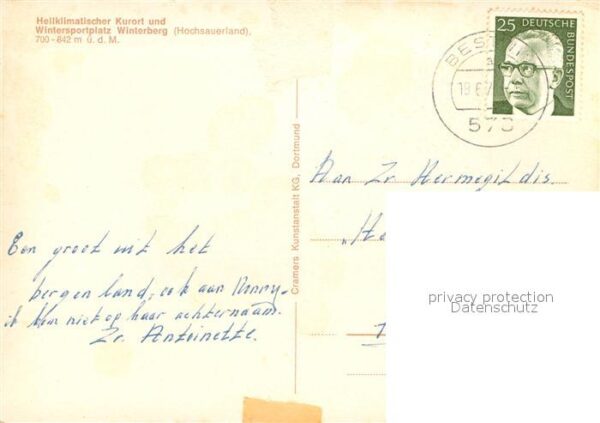 Heilklimatischer Kurort und
Wintersportplatz Winterberg (Hochsauerland),
700-842 m ü. d. M.
25 DEUTSCHE
BUNDESPOST
BEST
a
18.6.7
573
Cramers Kunstanstalt KG, Dortmund
Aan Zr. Hermegildis.
"He
Een groet uit het
bergenland, ook aan Nonny.
ik kom niet op haar achternaam.
Zr. Antoinette.
privacy protection
Datenschutz